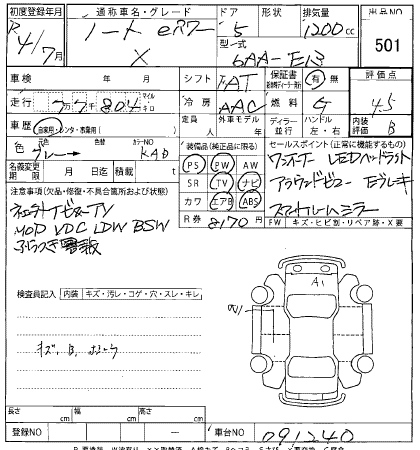 初度登録年月 通称車名・グレード ドア 形状 排気量 出品NO
R4/7月 ノート eパワー X 5 1200cc 501
型式 6AA-E13
車検 年 月 シフト FAT 保証書 有 無 評価点
走行 マイル キロ 冷房 AAC 燃料 G 4.5
車歴 自家用・レンタ・事業用 定員 人 外車モデル 年 ディーラー 並行 ハンドル 左・右 内装 B
色 元色 グレー → 色替 カラーNO KAD 装備品(純正品に限る) セールスポイント(正常に機能するもの)
名義変更期限 月 日迄 積載量 t PS PW AW ワンオーナー LEDヘッドライト
注意事項(欠品・修復・不具合箇所および状態) SR TV ナビ アラウンドビュー Eブレーキ
カワ エアB ABS スマートルームミラー
MOD VDC LDW BSW R券 8170円 FW キズ・ヒビ割・リペア跡・X要
検査員記入 内装 キズ・汚レ・コゲ・穴・スレ・キレ
A1
キズ、B、
長さ cm 幅 cm 高さ cm
登録NO ー 車台NO 091240